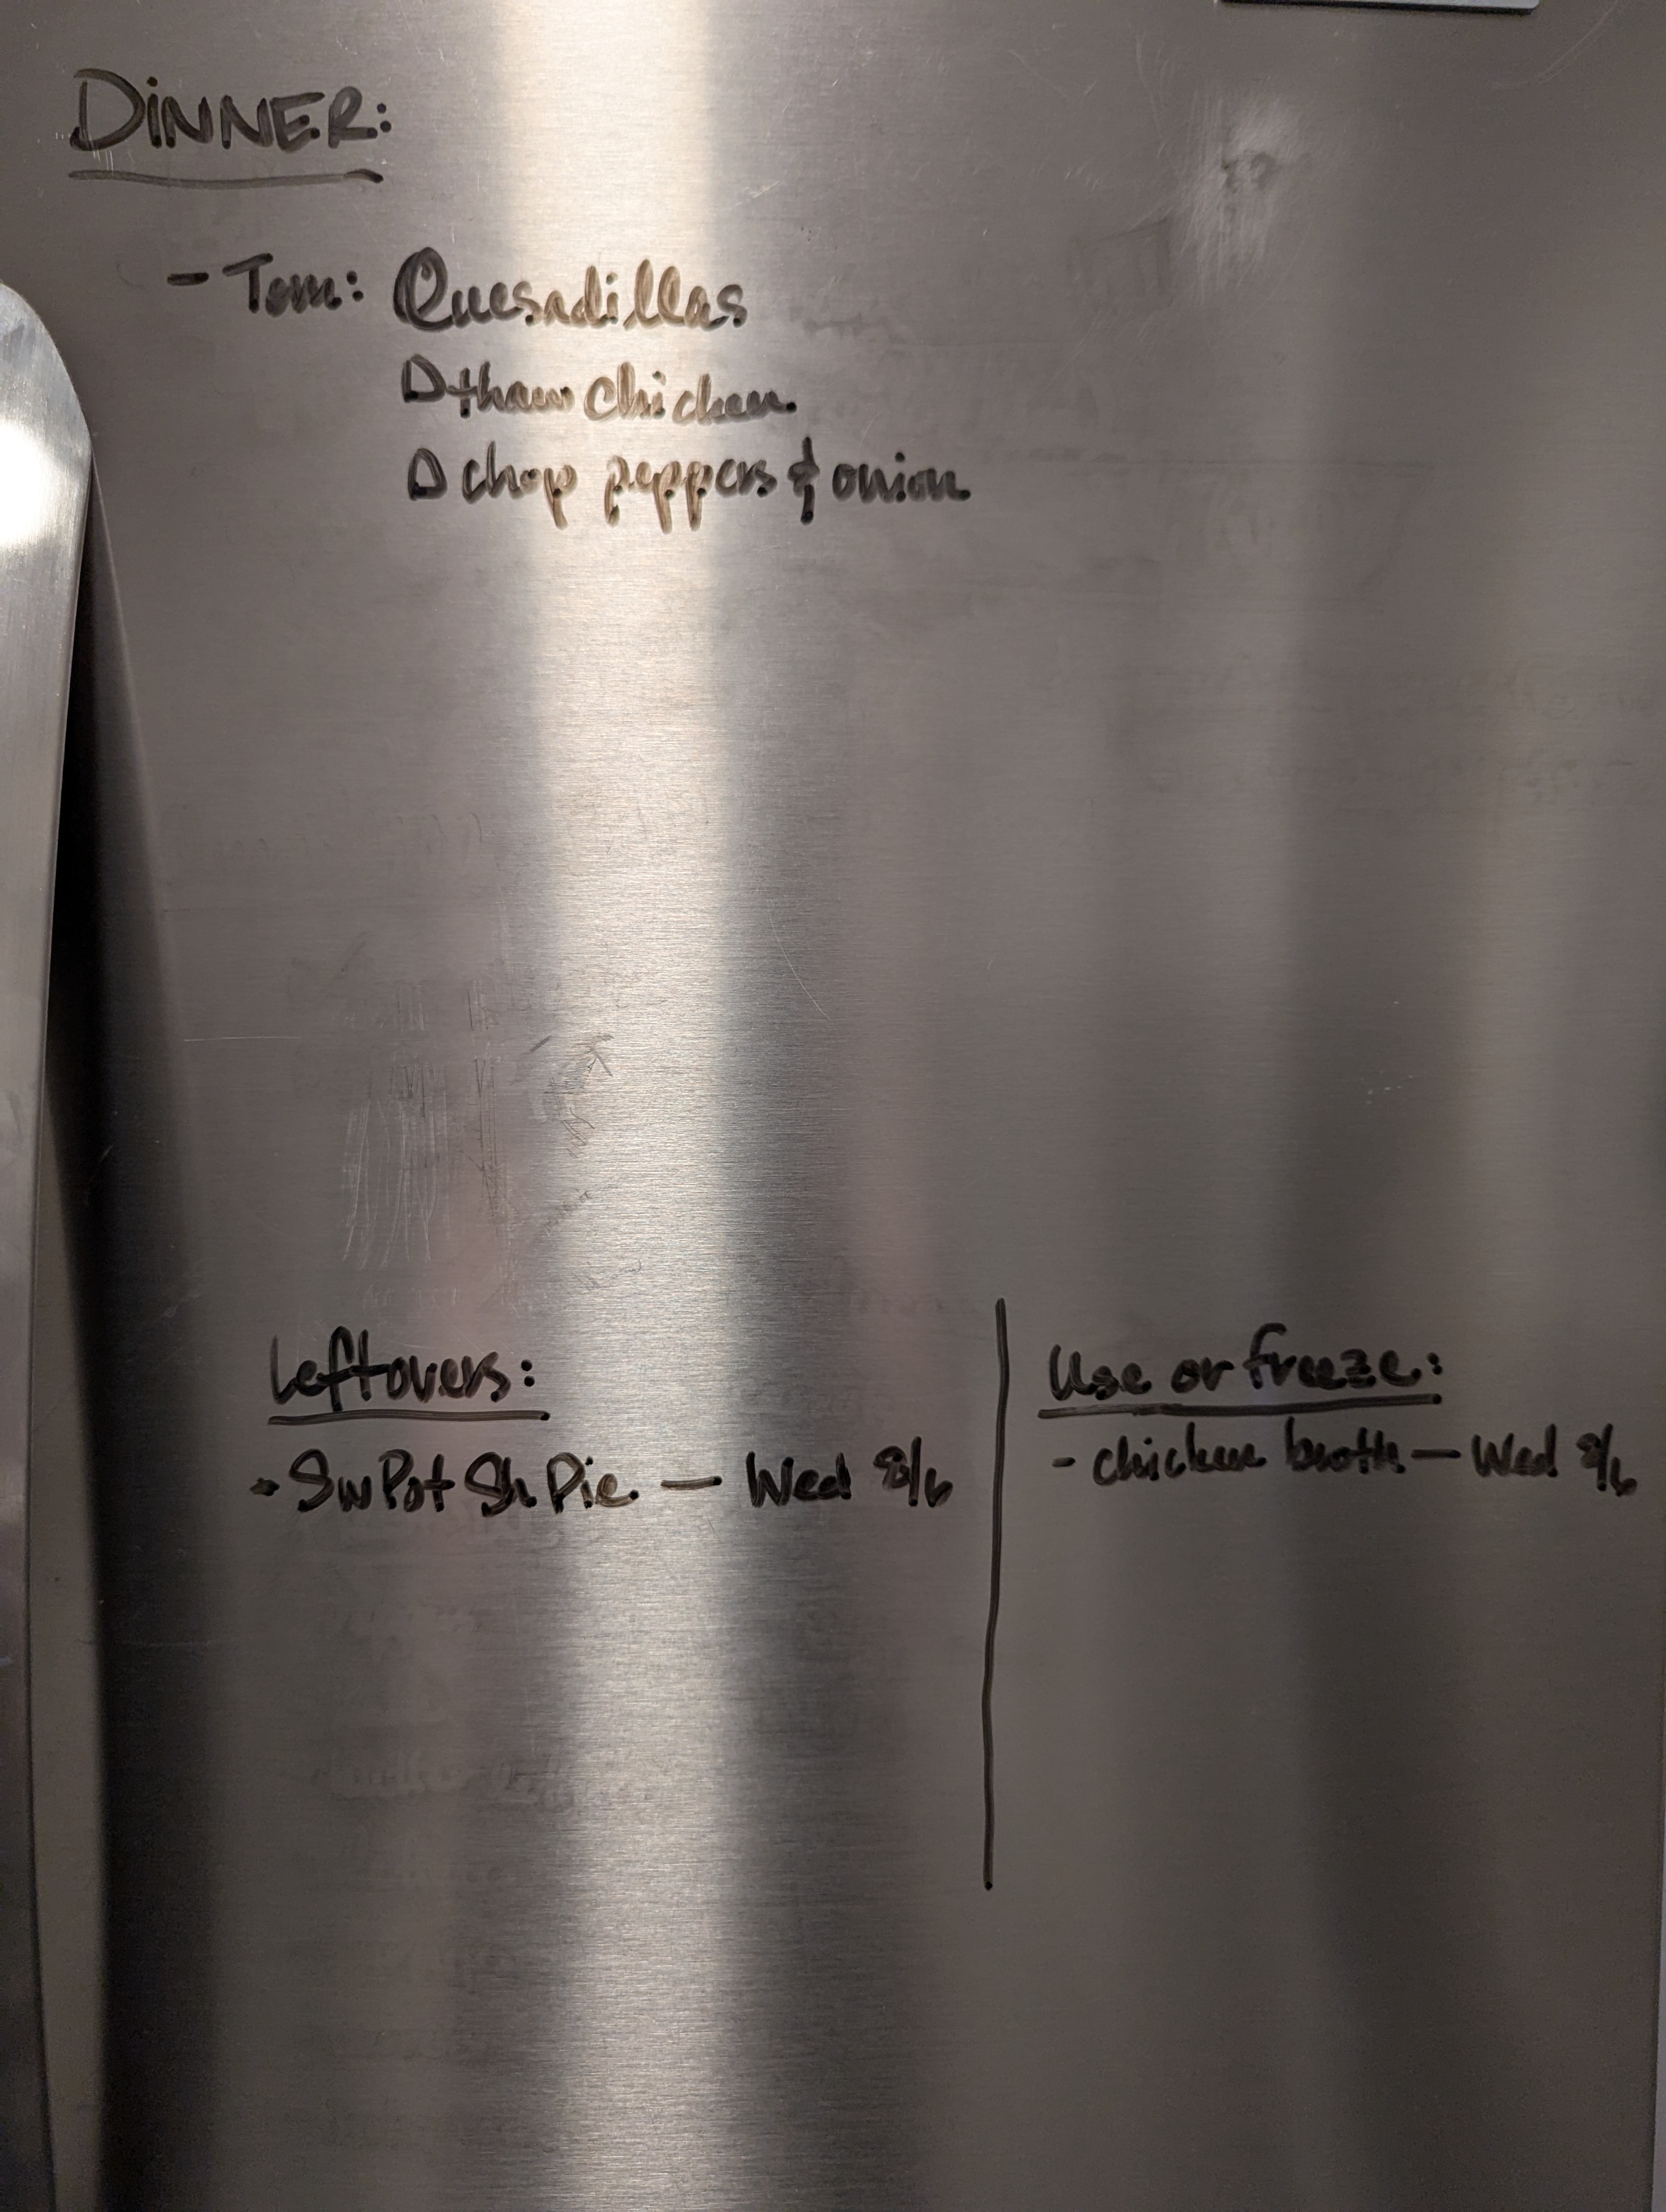 DINNER:
- Tom: Quesadillas
thaw chicken
chop peppers & onion
Leftovers:
- Sw Pot Sh Pie — Wed 8/6
Use or freeze:
- chicken broth — Wed 8/6